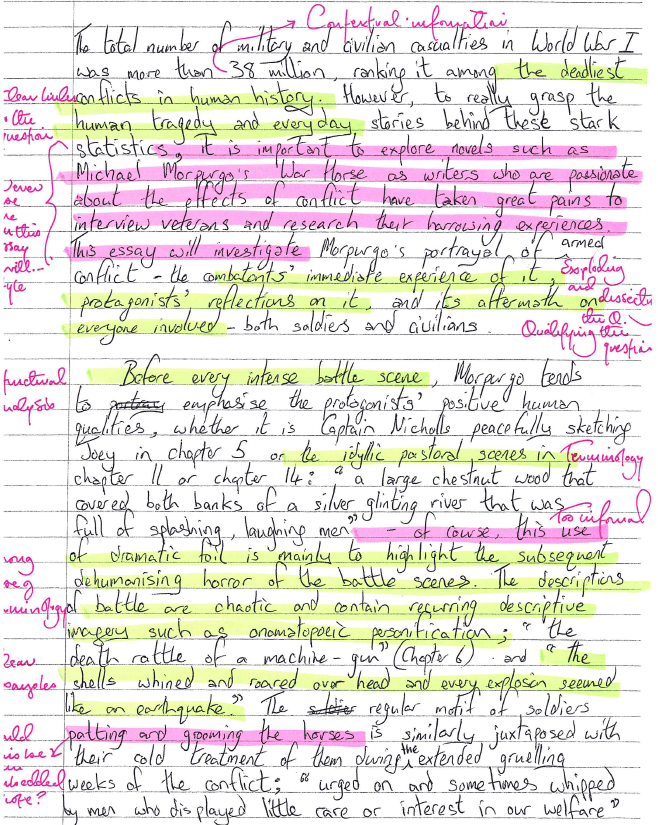 Contextual information
The total number of military and civilian casualties in World War I
was more than 38 million, ranking it among the deadliest
conflicts in human history. However, to really grasp the
human tragedy and everyday stories behind these stark
statistics, it is important to explore novels such as
Michael Morpurgo's War Horse as writers who are passionate
about the effects of conflict have taken great pains to
interview veterans and research their harrowing experiences.
This essay will investigate Morpurgo's portrayal of armed
conflict - the combatants' immediate experience of it,
protagonists' reflections on it, and its aftermath on
everyone involved - both soldiers and civilians.
the
question
essay
will...
style
Exploding
and dissecting
the Q.
Qualifying the
question
Before every intense battle scene, Morpurgo tends
to portray emphasise the protagonists' positive human
qualities, whether it is Captain Nicholls peacefully sketching
Joey in chapter 5 or the idyllic pastoral scenes in
chapter 11 or chapter 14: "a large chestnut wood that
covered both banks of a silver glinting river that was
full of splashing, laughing men" - of course, this use
of dramatic foil is mainly to highlight the subsequent
dehumanising horror of the battle scenes. The descriptions
of battle are chaotic and contain recurring descriptive
imagery such as onomatopoeic personification; "the
death rattle of a machine-gun" (Chapter 6) and "the
shells whined and roared over head and every explosion seemed
like an earthquake." The soldier regular motif of soldiers
patting and grooming the horses is similarly juxtaposed with
their cold treatment of them during the extended gruelling
weeks of the conflict; "urged on and sometimes whipped
by men who displayed little care or interest in our welfare"
Terminology
Too informal